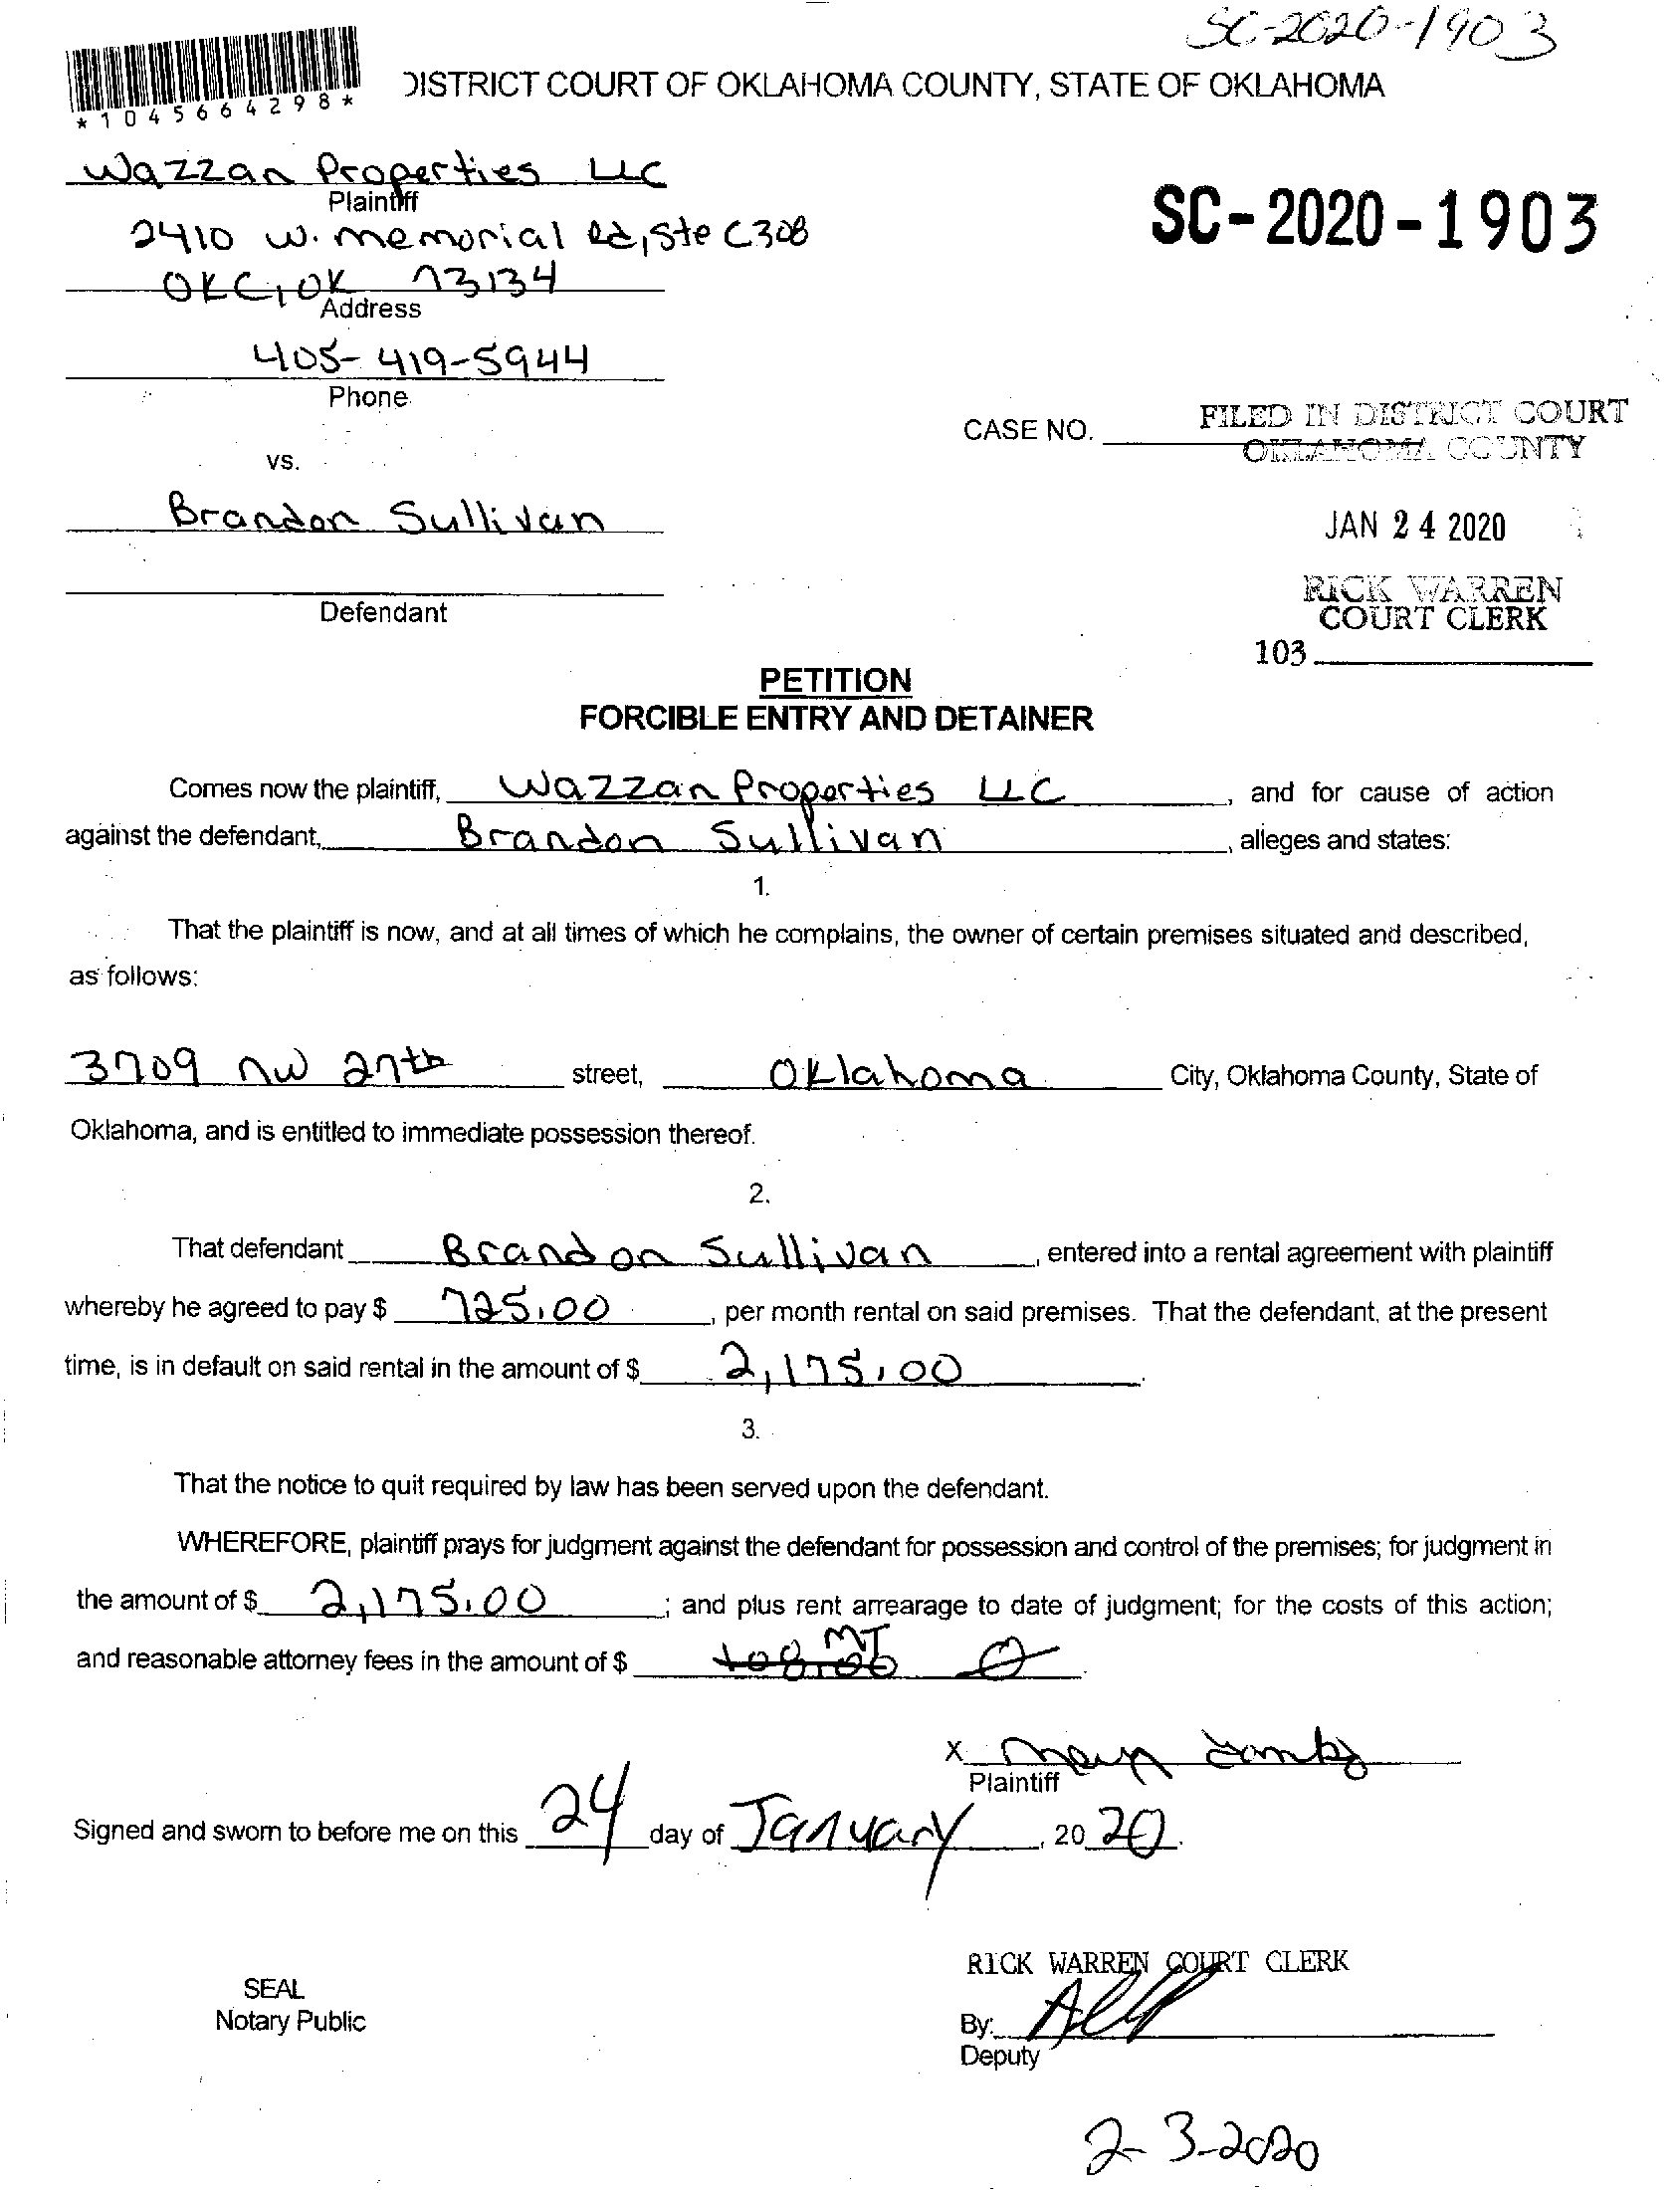 SC-2020-1903
*1045664298*
DISTRICT COURT OF OKLAHOMA COUNTY, STATE OF OKLAHOMA
Wazzan Properties LLC
Plaintiff
2410 W. Memorial Rd, Ste C308
SC-2020-1903
OKC, OK 73134
Address
405-419-5944
Phone
CASE NO.
FILED IN DISTRICT COURT
OKLAHOMA COUNTY
vs.
Brandon Sullivan
JAN 24 2020
Defendant
RICK WARREN
COURT CLERK
103
PETITION
FORCIBLE ENTRY AND DETAINER
Comes now the plaintiff, Wazzan Properties LLC, and for cause of action
against the defendant, Brandon Sullivan, alleges and states:
1.
That the plaintiff is now, and at all times of which he complains, the owner of certain premises situated and described,
as follows:
3709 NW 27th street, Oklahoma City, Oklahoma County, State of
Oklahoma, and is entitled to immediate possession thereof.
2.
That defendant Brandon Sullivan, entered into a rental agreement with plaintiff
whereby he agreed to pay $ 725.00, per month rental on said premises. That the defendant, at the present
time, is in default on said rental in the amount of $ 2,175.00.
3.
That the notice to quit required by law has been served upon the defendant.
WHEREFORE, plaintiff prays for judgment against the defendant for possession and control of the premises; for judgment in
the amount of $ 2,175.00; and plus rent arrearage to date of judgment; for the costs of this action;
MT
and reasonable attorney fees in the amount of $ 0.
X
Plaintiff
Signed and sworn to before me on this 24 day of January, 2020.
RICK WARREN COURT CLERK
SEAL
Notary Public
By:
Deputy
2-3-2020